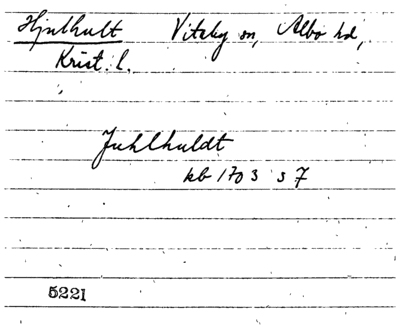 Hjulhult Vitaby sn, Albo hd,
Krist. l.
Juhlhuldt
kb 1703 s 7
5221